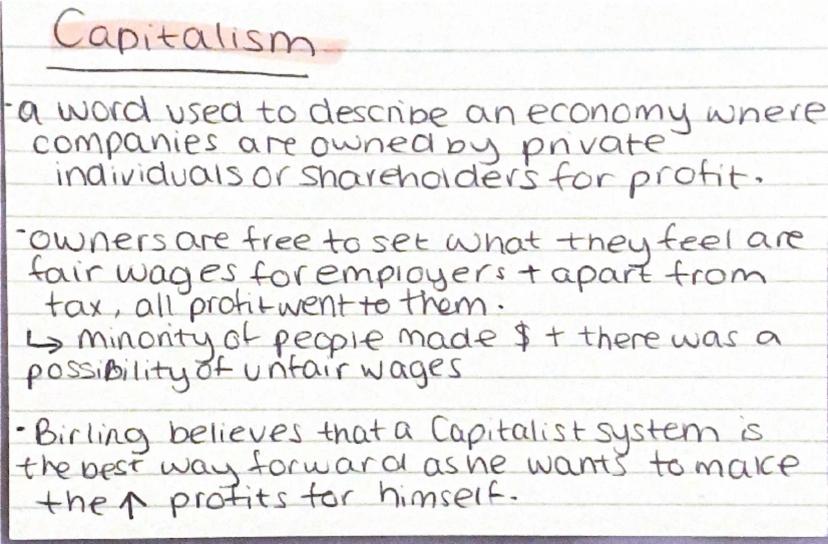 Capitalism
-a word used to describe an economy where
companies are owned by private
individuals or shareholders for profit.
-owners are free to set what they feel are
fair wages for employers + apart from
tax, all profit went to them.
↳ minority of people made $ + there was a
possibility of unfair wages
·Birling believes that a Capitalist system is
the best way forward as he wants to make
the ↑ profits for himself.